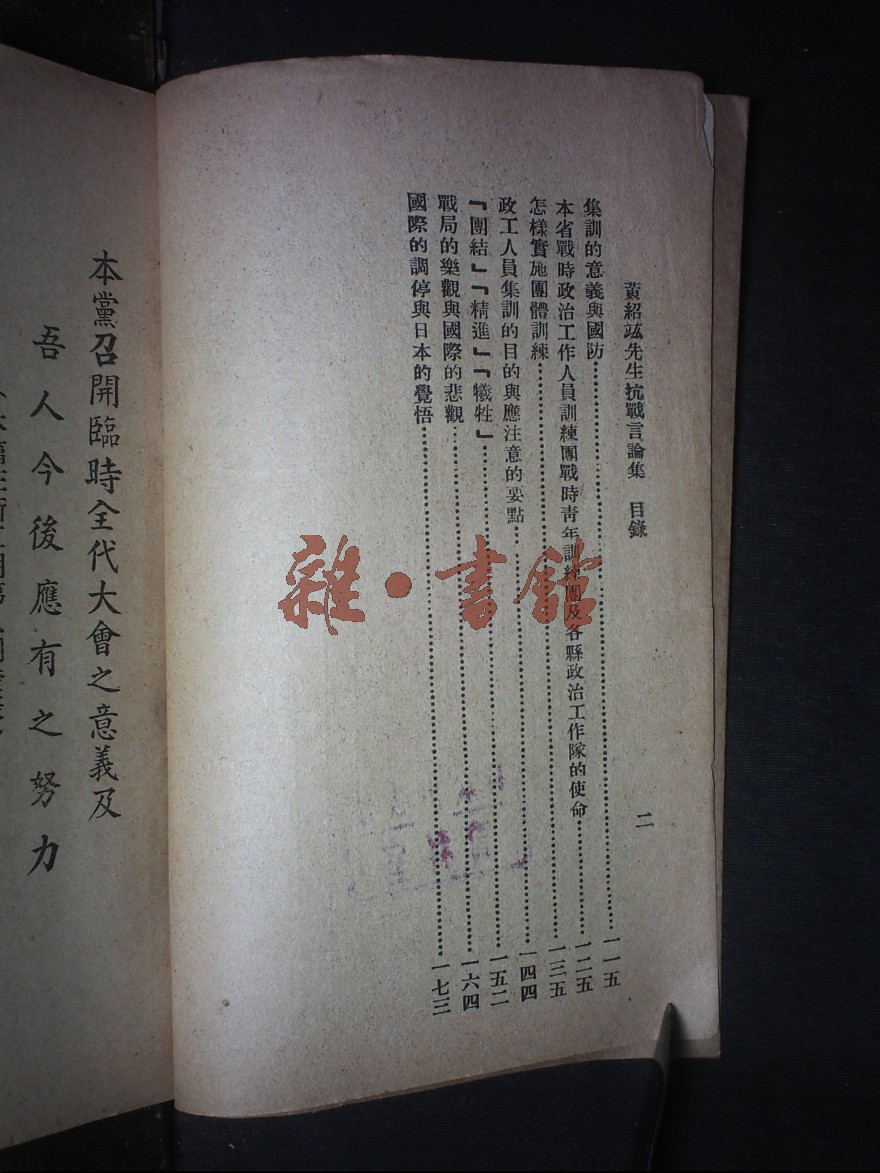 黃紹竑先生抗戰言論集　目錄　二
集訓的意義與國防……一一五
本省戰時政治工作人員訓練團戰時青年訓練團及各縣政治工作隊的使命……一二五
怎樣實施團體訓練……一三五
政工人員集訓的目的與應注意的要點……一四四
『團結』『精進』『犧牲』……一五二
戰局的樂觀與國際的悲觀……一六四
國際的調停與日本的覺悟……一七三
本黨召開臨時全代大會之意義及
吾人今後應有之努力
雜·書館